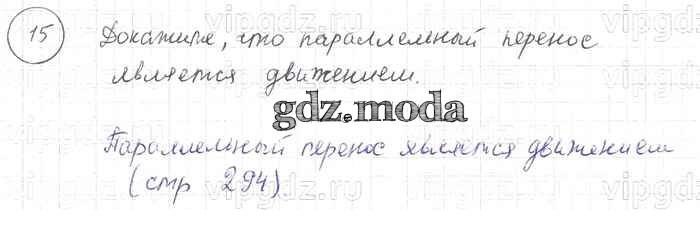 15 Докажите, что параллельный перенос
является движением.
gdz.moda
Параллельный перенос является движением
(стр 294)
vipgdz.ru